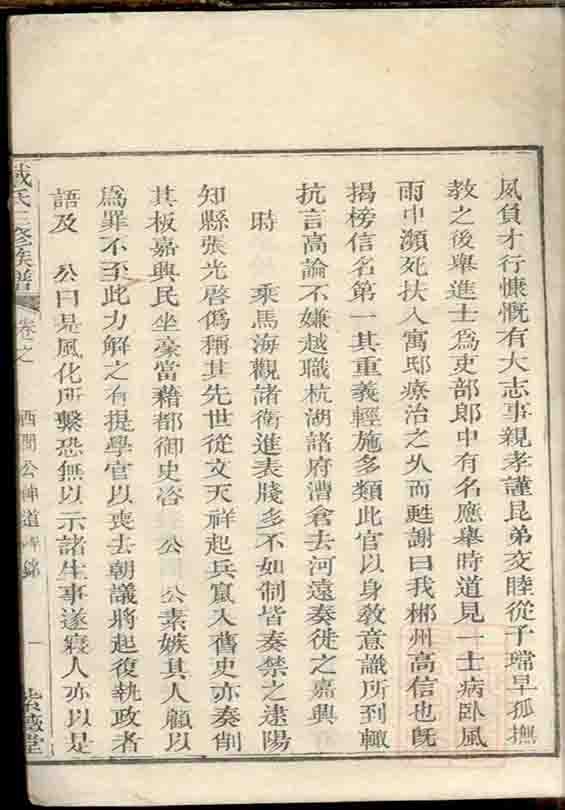 夙負才行慷慨有大志事親孝謹昆弟友睦從子璫早孤撫
教之後舉進士爲吏部郎中有名應舉時道見一士病臥風
雨中瀕死扶入寓邸療治之乆而甦謝曰我郴州高信也旣
揭榜信名第一其重義輕施多類此官以身教意識所到輙
抗言高論不嫌越職杭湖諸府漕倉去河遠奏徙之嘉興
時 乘馬海觀諸衛進表牋多不如制皆奏禁之建陽
知縣張光啓僞稱其先世從文天祥起兵竄入舊史亦奏削
其板嘉興民坐豪當藉都御史咨 公 公素嫉其人顧以
爲罪不至此力解之有提學官以喪去朝議將起復執政者
語及 公曰是風化所繫恐無以示諸生事遂寢人亦以是
戴氏三修族譜 卷之 西閩公神道碑銘 一 紫薇堂